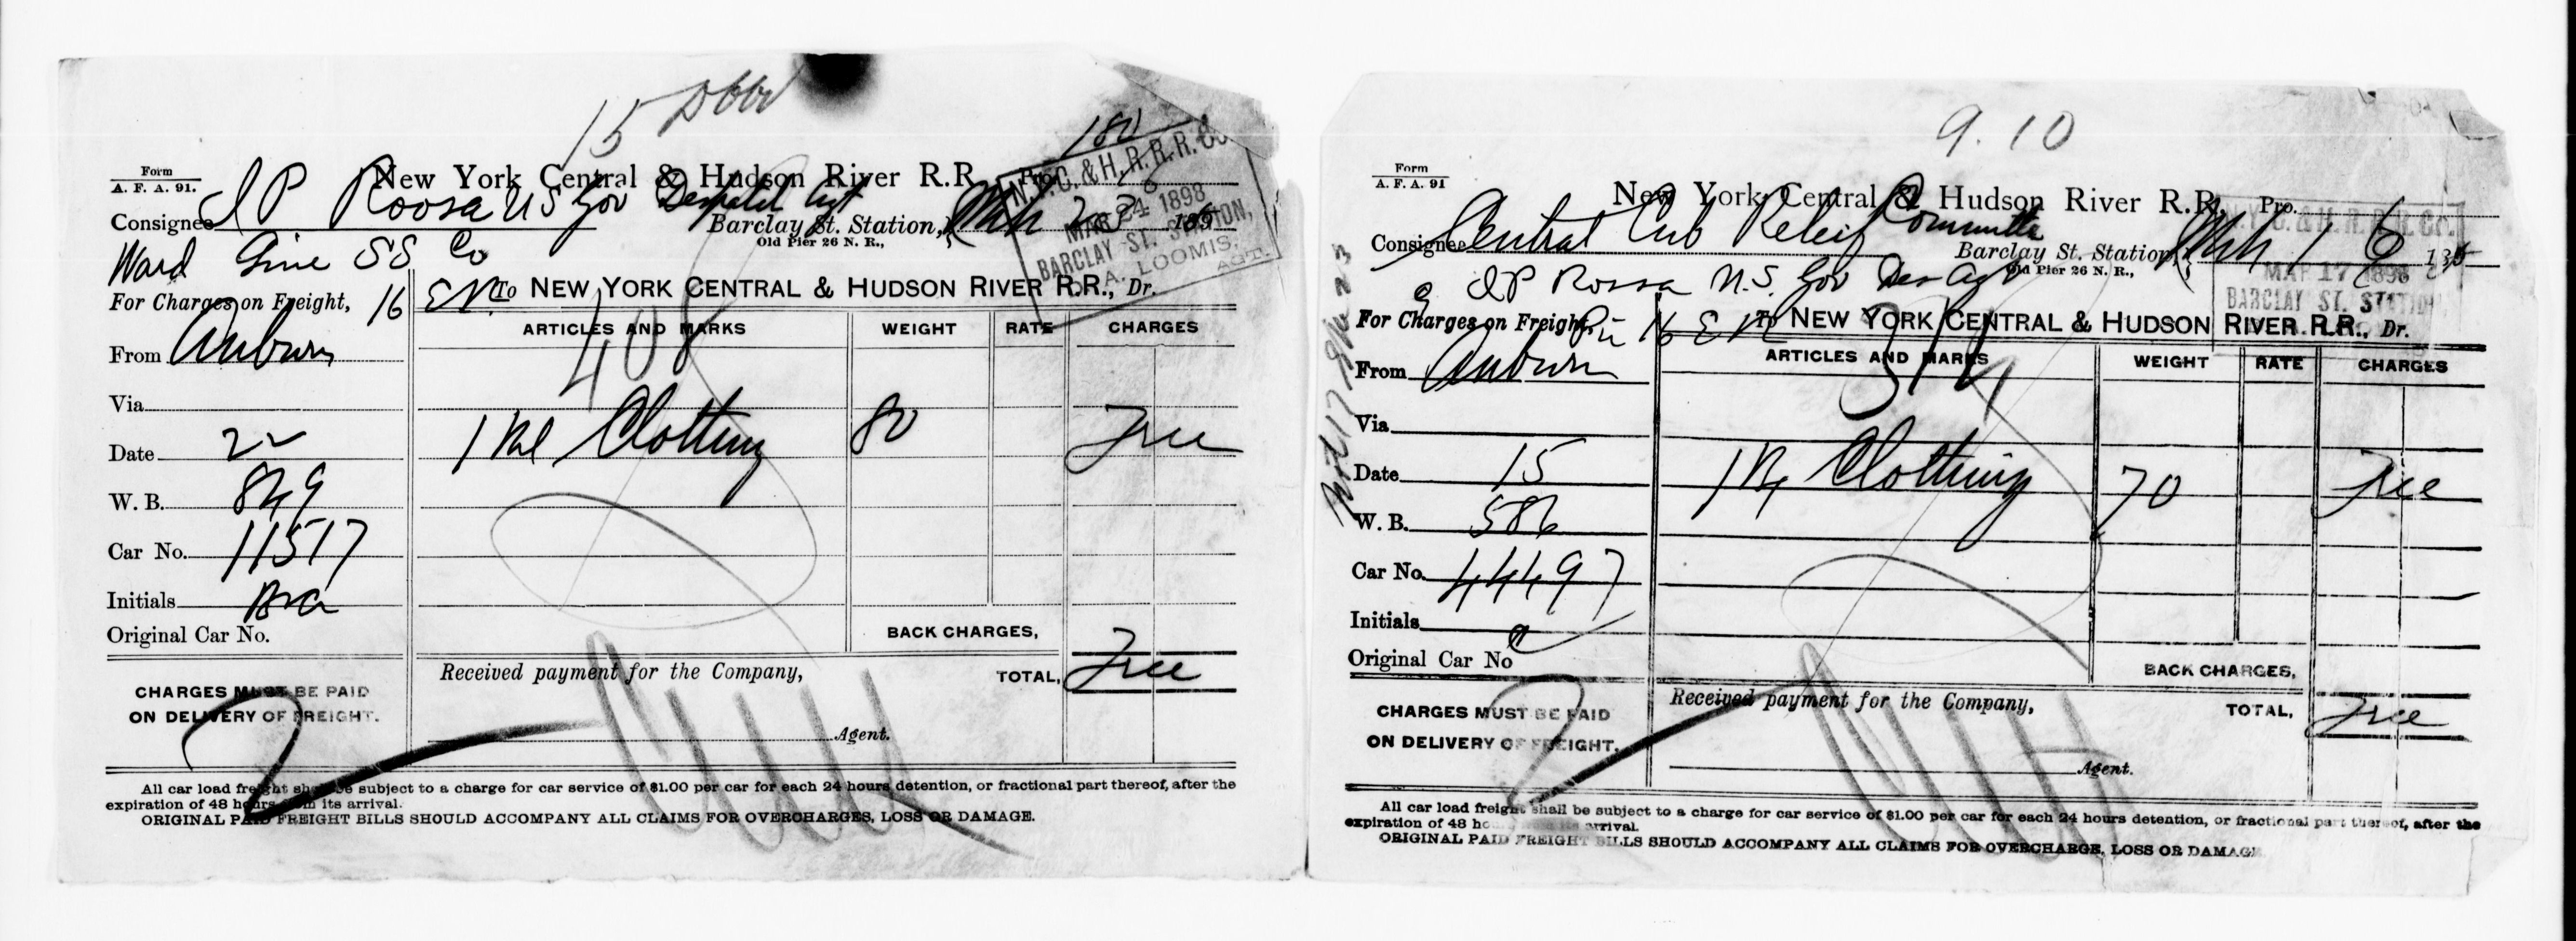 15
180
Form
A. F. A. 91.
New York Central & Hudson River R.R. Pro.
Consignee I P Roosa US Gov Despatch Agt
Barclay St. Station, Mch
Old Pier 26 N. R.,
N.Y.C. & H. R. R. R. Co.
MAR 24 1898
BARCLAY ST. STATION,
A. LOOMIS,
AGT.
Ward Line SS Co
For Charges on Freight, 16 ER
To NEW YORK CENTRAL & HUDSON RIVER R.R., Dr.
ARTICLES AND MARKS WEIGHT RATE CHARGES
From Auburn
408
Via
Date 22
1 Bbl Clothing 80 Free
W. B. 849
Car No. 11517
Initials
Original Car No.
BACK CHARGES,
Received payment for the Company, TOTAL, Free
CHARGES MUST BE PAID
ON DELIVERY OF FREIGHT.
Agent.
All car load freight shall be subject to a charge for car service of $1.00 per car for each 24 hours detention, or fractional part thereof, after the
expiration of 48 hours from its arrival.
ORIGINAL PAID FREIGHT BILLS SHOULD ACCOMPANY ALL CLAIMS FOR OVERCHARGES, LOSS OR DAMAGE.
9.10
Form
A. F. A. 91
New York Central & Hudson River R.R. Pro.
Consignee Central Cub Relief Committe
Barclay St. Station, Mch 16
Old Pier 26 N. R.,
MAR 17 1898
BARCLAY ST. STATION
I P Rossa U.S. Gov Des Agt
For Charges on Freight, Pier 16 E R
To NEW YORK CENTRAL & HUDSON RIVER R.R., Dr.
ARTICLES AND MARKS WEIGHT RATE CHARGES
From Auburn
314
Via
Date 15
1 Bx Clothing 70 Free
W. B. 586
Car No. 44497
Initials
Original Car No
BACK CHARGES,
Received payment for the Company, TOTAL, Free
CHARGES MUST BE PAID
ON DELIVERY OF FREIGHT.
Agent.
All car load freight shall be subject to a charge for car service of $1.00 per car for each 24 hours detention, or fractional part thereof, after the
expiration of 48 hours from its arrival.
ORIGINAL PAID FREIGHT BILLS SHOULD ACCOMPANY ALL CLAIMS FOR OVERCHARGE, LOSS OR DAMAGE